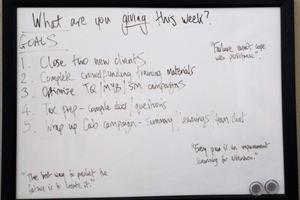 What are you giving this week?
GOALS
1. Close two new clients
2. Complete crowdfunding training materials
3. Optimize TQ/MYB/SM campaigns
4. Tax prep - compile docs/questions
5. Wrap up Cab campaign - summary/learnings from client
"Failure can't cope
with persistence."
"The best way to predict the
future is to create it."
"Every pain is an
learning for attention."